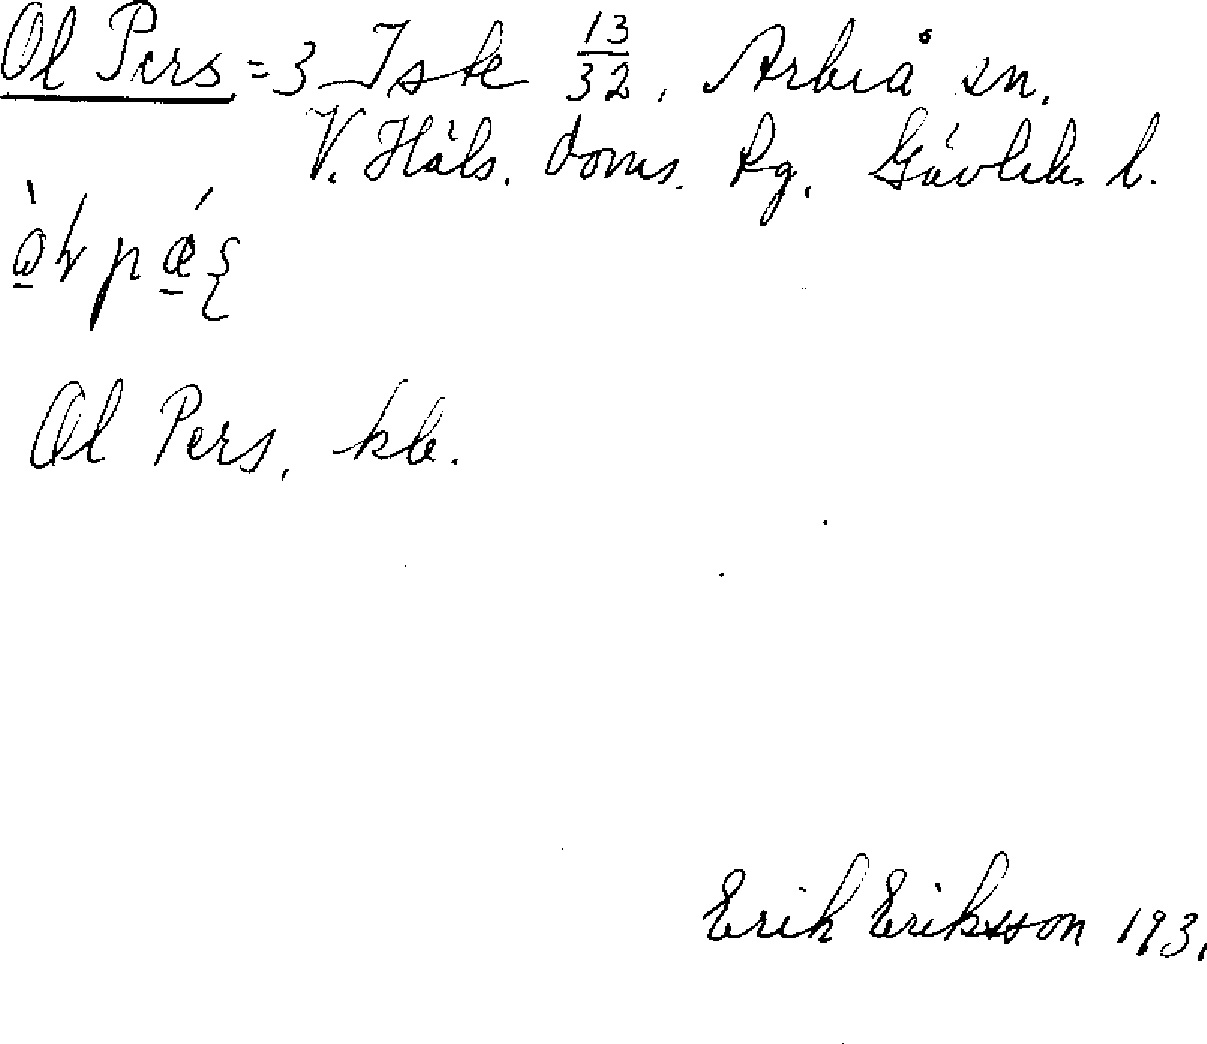 Ol Pers = 3 Isk 13/32, Arbrå sn.
V. Häls. doms. Rg. Gävleb. l.
Ol Pers, kb.
Erik Eriksson 193